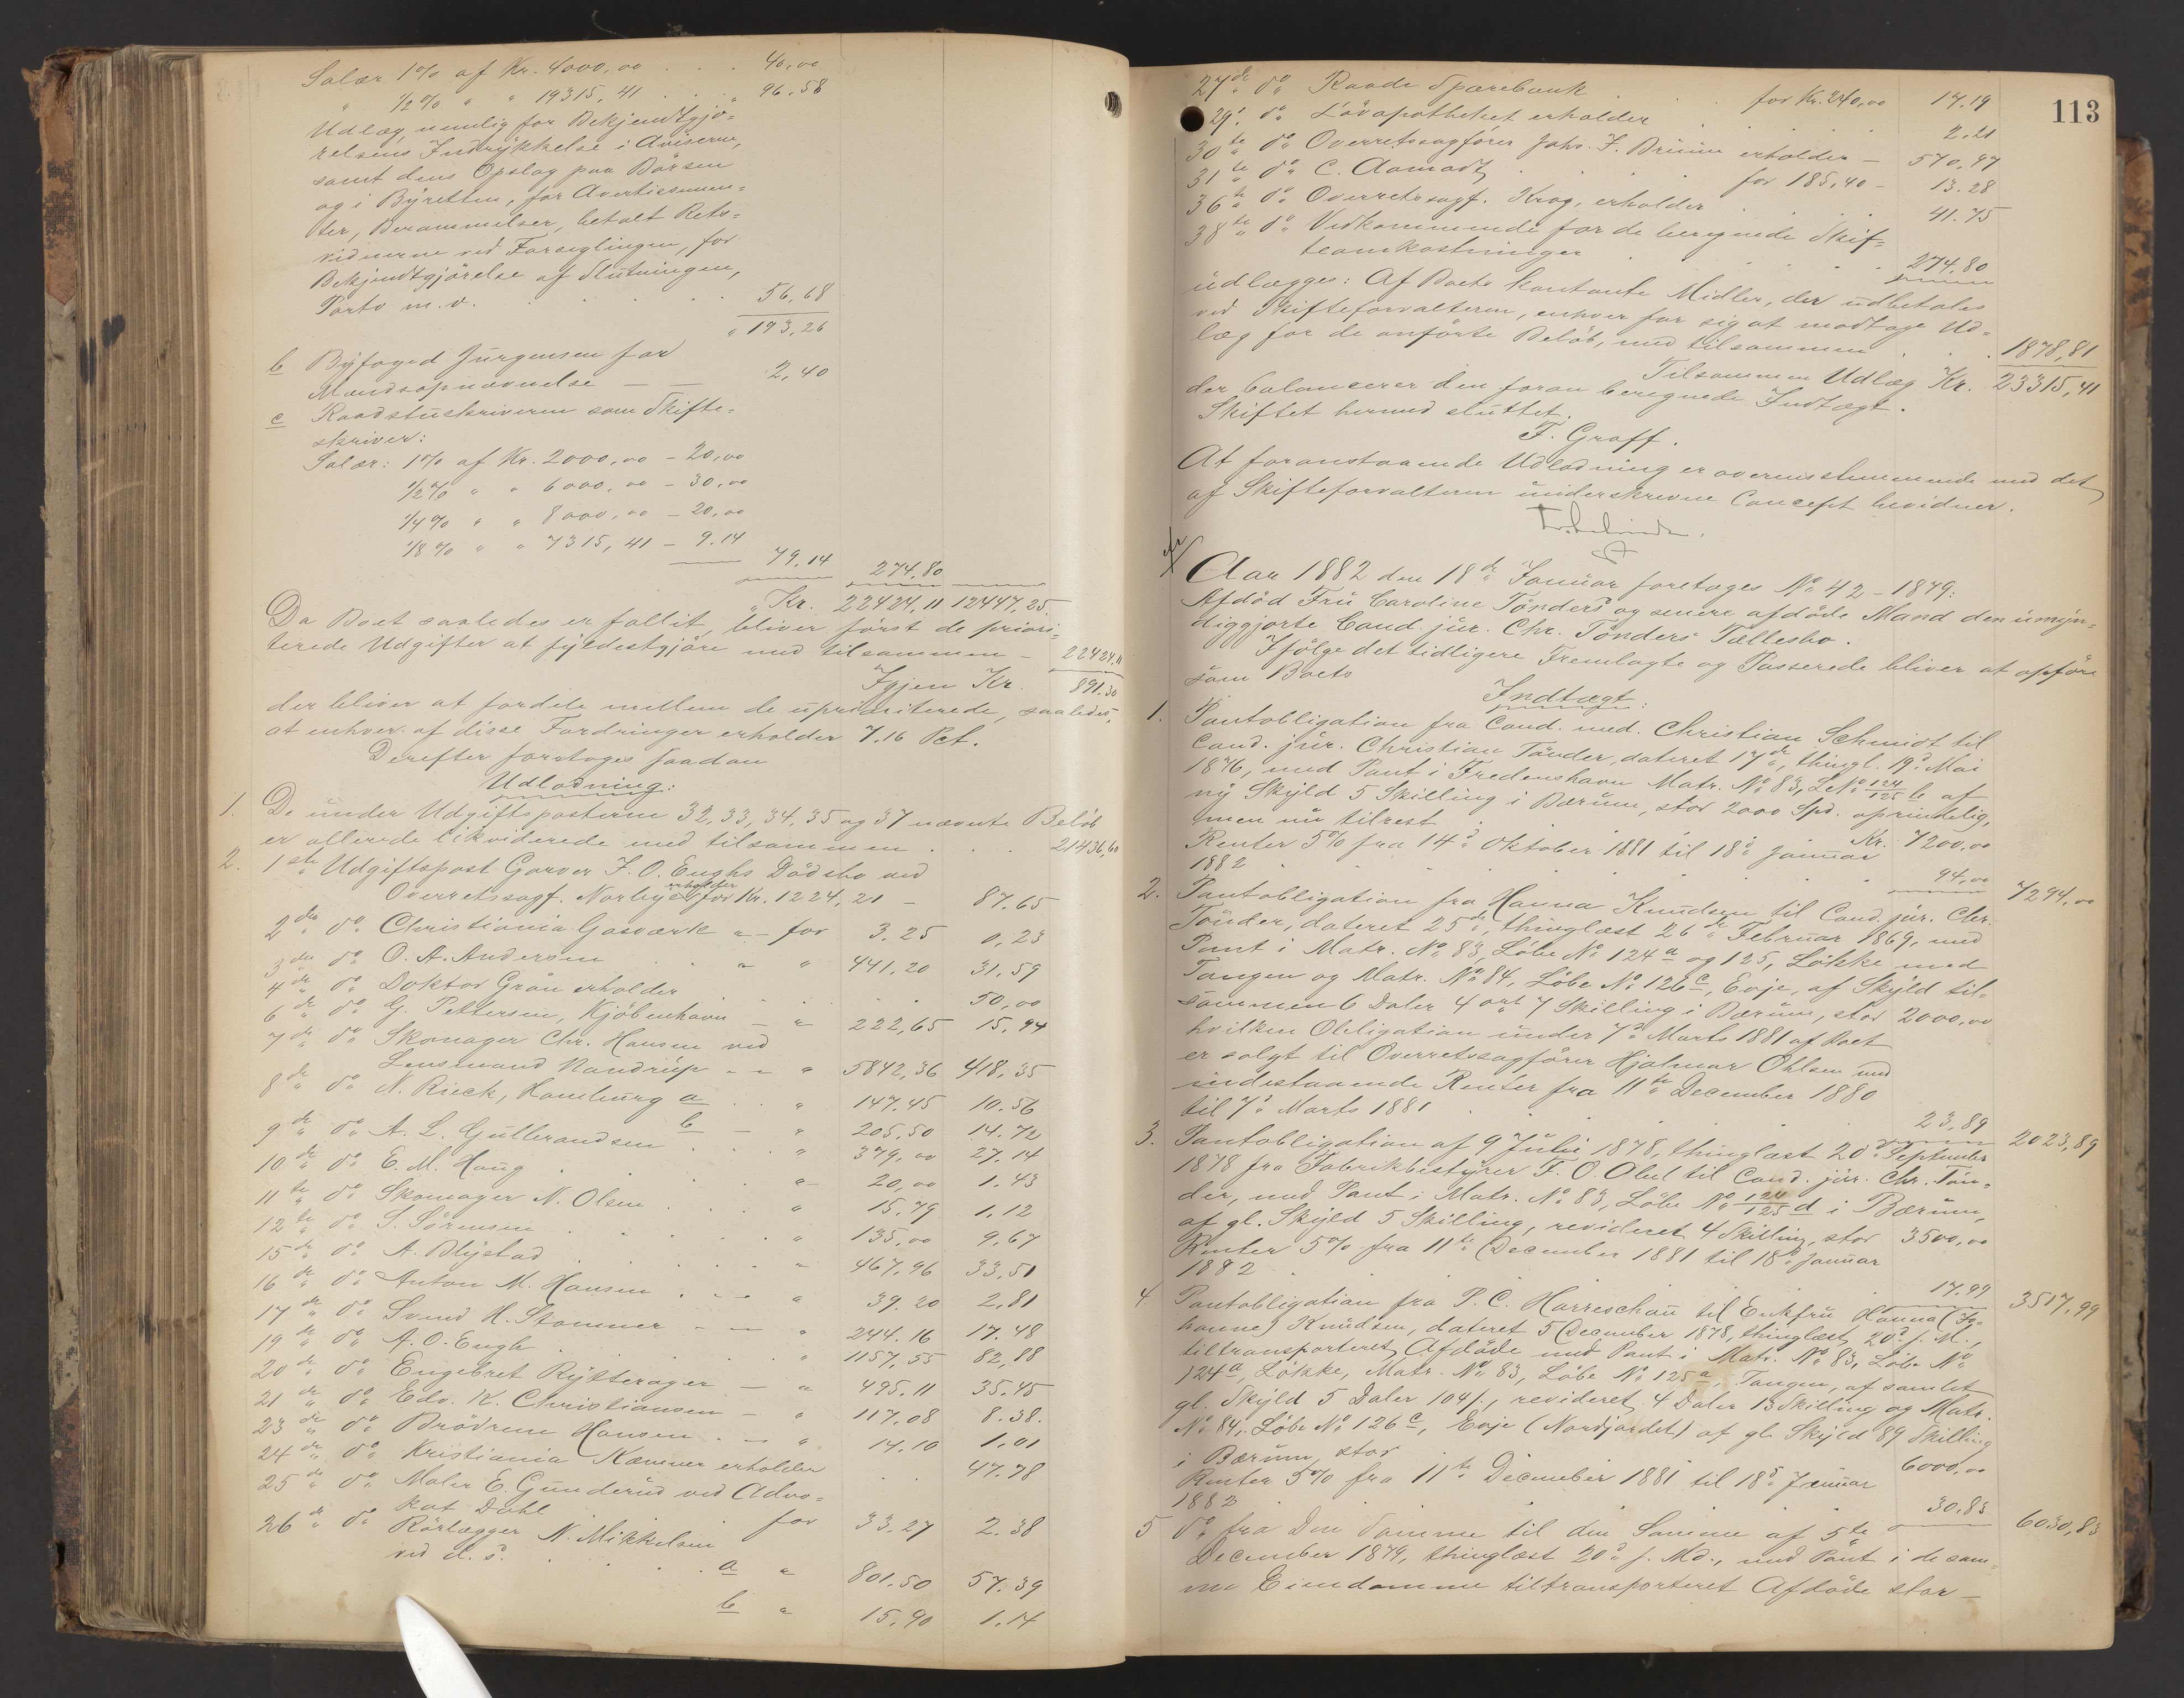 Salær 1% af Kr. 4000,00 . . . 40,00
" 1/2% " " 19315,41 . . . " 96.58
Udlæg, nemlig for Bekjendtgjö-
relsens Indrykkelse i Aviserne,
samt dens Opslag paa Börsen
og i Byretten, for Avertissemen-
ter, Berammelser, betalt Rets-
vidnerne ved Forseglingen, for
Bekjendtgjörelse af Slutningen,
Porto m.v. . . . . . 56,68
" 193,26
b Byfoged Jürgensen for
Mandsopnævnelse — — 2,40
c Raadstuskriveren som Skifte-
skriver:
Salær: 1% af Kr. 2000,00 - 20,00
1/2% " " 6000,00 - 30,00
1/4% " " 8000,00 - 20,00
1/8% " " 7315,41 - 9.14
79.14 274.80
" Kr. 22424,11 12447,25.
Da Boet saaledes er fallit, bliver först de priori-
terede Udgifter at fyldestgjöre med tilsammen — 22424,11
Igjen Kr. 891.30
der bliver at fordele mellem de upriariterede, saaledes,
at enhver af disse Fordringer erholder 7.16 Pct.
Derefter foretoges saadan
Udlodning:
1. De under Udgiftsposterne 32, 33, 34, 35 og 37 nævnte Belöb
er allerede likviderede med tilsammen . . . 21436,60
2. 1ste Udgiftspost Garver J. O. Enghs Dödsbo ved
Overretssagf. Norbye erholder for Kr. 1224,21 — 87.65
2den do Christiania Gasværk " - for 3.25 0,23
3die do O. A. Andersen . " " 441.20 31.59
4de do Doktor Grön erholder . . . . 50,00
6te do G. Pettersen, Kjöbenhavn — " 222,65 15.94
7de do Skomager Chr. Hansen ved
Lensmand Nandrüp - - " 5842,36 418,35
8de do N. Rieck, Hamburg a . . " 147.45 10.56
b — " 205.50 14.72
9de do A. L. Gullerandsen . . . " 379,00 27.14
10de do E. M. Haug . . . "- 20,00 1.43
11te do Skomager N. Olsen . . . " 15.79 1.12
12te do S. Sörensen . . . . " 135,00 9,67
15de do A. Blystad . . . . " 467.96 33,51
16de do Anton M. Hansen . - - " 39.20 2,81
17de do Svend H. Stammer - - " 244.16 17.48
19de do A. O. Engh . . . . " 1157,55 82,88
20de do Engebret Rysterager — " 495.11 35.45
21de do Edv. K. Christiansen — " 117.08 8.38.
23de do Brödrene Hansen . — " 14.10 1.01
24de do Kristiania Kæmner erholder . . 47.78
25de do Maler E. Gunderud ved Advo-
kat Dahl . . for 33.27 2.38
26de do Rörlægger N. Mikkelsen
ved d. s. . . . . a " 801.50 57.39
b " 15.90 1.14
113
27de do Raade Sparebank . . . for Kr. 240,00 17.19
29de do Lövapotheket erholder . . . 2.21
30te do Overretssagförer Johs. F. Bruun erholder — 570,97
31te do C. Aamodt . . . for 185,40 - 13.28
36te do Overretssagf. Krog, erholder . . . 41.75
38te do Vedkommende for de beregnede Skif-
teomkostninger . . . . 274.80
udlægges: Af Boets kontante Midler, der udbetales
ved Skifteforvalteren, enhver for sig at modtage Ud-
læg for de anförte Belöb, med tilsammen . . 1878,81
Tilsammen Udlæg Kr. 23315,41
der balancerer den foran beregnede Indtægt.
Skiftet hermed sluttet.
F. Graff.
At foranstaaende Udlodning er overensstemmende med det
af Skifteforvalteren underskrevne Concept bevidner.
Aar 1882 den 18de Januar foretoges No 42 - 1879:
Afdöd Fru Caroline Tönders og senere afdöde Mand den umyn-
diggjorte Cand. jur. Chr. Tönders Fællesbo.
Ifölge det tidligere Fremlagte og Passerede bliver at opföre
som Boets
Indtægt:
1. Pantobligation fra Cand. med. Christian Schmidt til
Cand. jur. Christian Tönder, dateret 17de, thingl. 19de Mai
1876, med Pant i Fredenshavn Matr. No 83, L.No 124/125 b af
ny Skyld 5 Skilling i Bærum, stor 2000 Spd. oprindelig,
men nu tilrest . . . . Kr. 7200,00
Renter 5% fra 14de Oktober 1881 til 18de Januar
1882 . . . . 94,00 7294,00
2. Pantobligation fra Hanna Knudsen til Cand. jur. Chr.
Tönder, dateret 25de, thinglæst 26de Februar 1869, med
Pant i Matr. No 83, Löbe No 124a og 125, Lökke med
Tangen og Matr. No 84, Löbe No 126c, Evje, af Skyld til-
sammen 6 Daler 4 ort 7 Skilling i Bærum, stor 2000,00
hvilken Obligation under 7de Marts 1881 af Boet
er solgt til Overretssagförer Hjalmar Ohlsen med
indestaaende Renter fra 11te December 1880
til 7de Marts 1881 . . . 23,89 2023,89
3. Pantobligation af 9 Juli 1878, thinglæst 20de September
1878 fra Fabrikbestyrer F. O. Olul til Cand. jur. Chr. Tön-
der, med Pant i Matr. No 83, Löbe No 124/125 d i Bærum,
af gl. Skyld 5 Skilling, revideret 4 Skilling, stor 3500,00
Renter 5% fra 11te December 1881 til 18de Januar
1882 . . . . 17,99 3517,99
4. Pantobligation fra P. C. Harreschou til Enkefru Hanna (Jo-
hanne) Knudsen, dateret 5 December 1878, thinglæst 20de s. M.,
tiltransporteret Afdöde med Pant i Matr. No 83, Löbe No
124a, Lökke, Matr. No 83, Löbe No 125a, Tangen, af samlet
gl. Skyld 5 Daler 104 s., revideret 4 Daler 13 Skilling og Matr.
No 84, Löbe No 126c, Evje (Nordjordet) af gl. Skyld 89 Skilling
i Bærum, stor . . . 6000,00
Renter 5% fra 11te December 1881 til 18de Januar
1882 . . . . 30.83 6030,83
5 do fra Den Samme til den Samme af 5te
December 1879, thinglæst 20de s. Md., med Pant i de sam-
me Eiendomme tiltransporteret Afdöde stor —